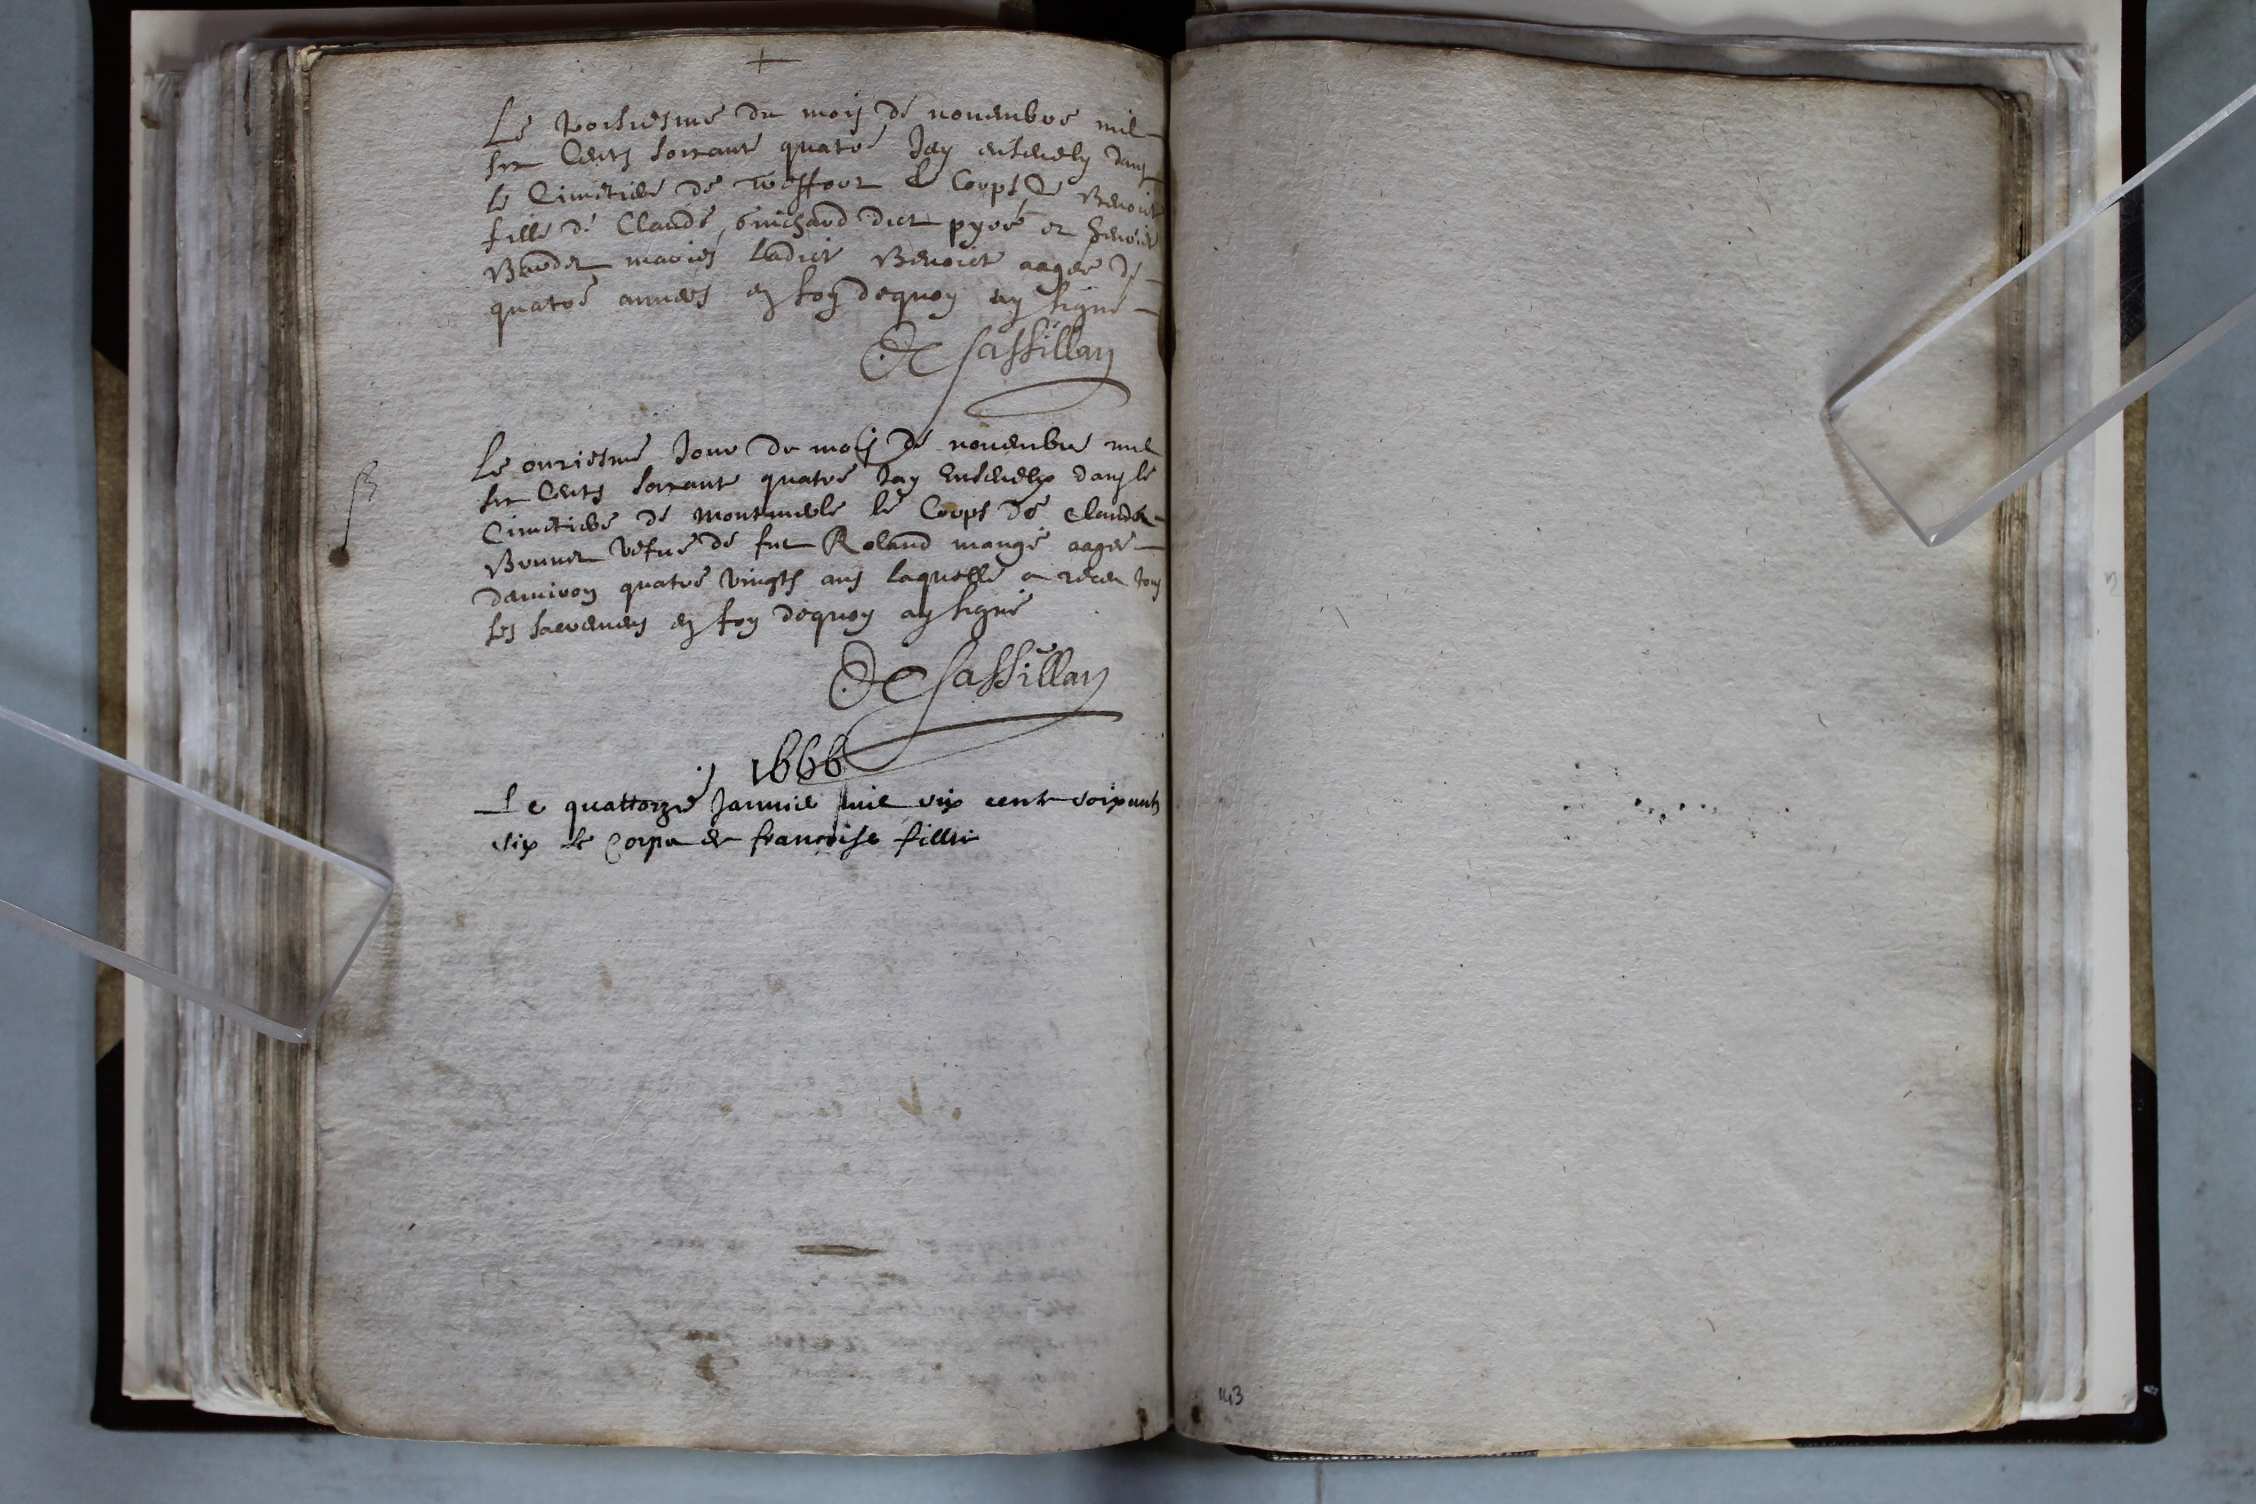 Le troisiesme du mois de novembre mil
six Cents soixante quatre Jay ensevely dans
le Cimetiere de treffort le Corps de Benoite
fille de Claude Guichard dict pyré et Benoite
mariés Ladite Benoite aagee de
quatre annees en foy dequoy ay signé
De Sassillan
Le onziesme Jour du mois de novembre mil
six Cents soixante quatre Jay Ensevely dans le
Cimetiere de le Corps de Clauda
Brunet vefue de fut Roland mangé aagee
denviron quatre vingts ans laquelle a receu tous
ses sacremens en foy dequoy ay signé
De Sassillan
1666
Le quattorze Janvie mil six cent soixante
six le Corps de francoise fillie
143